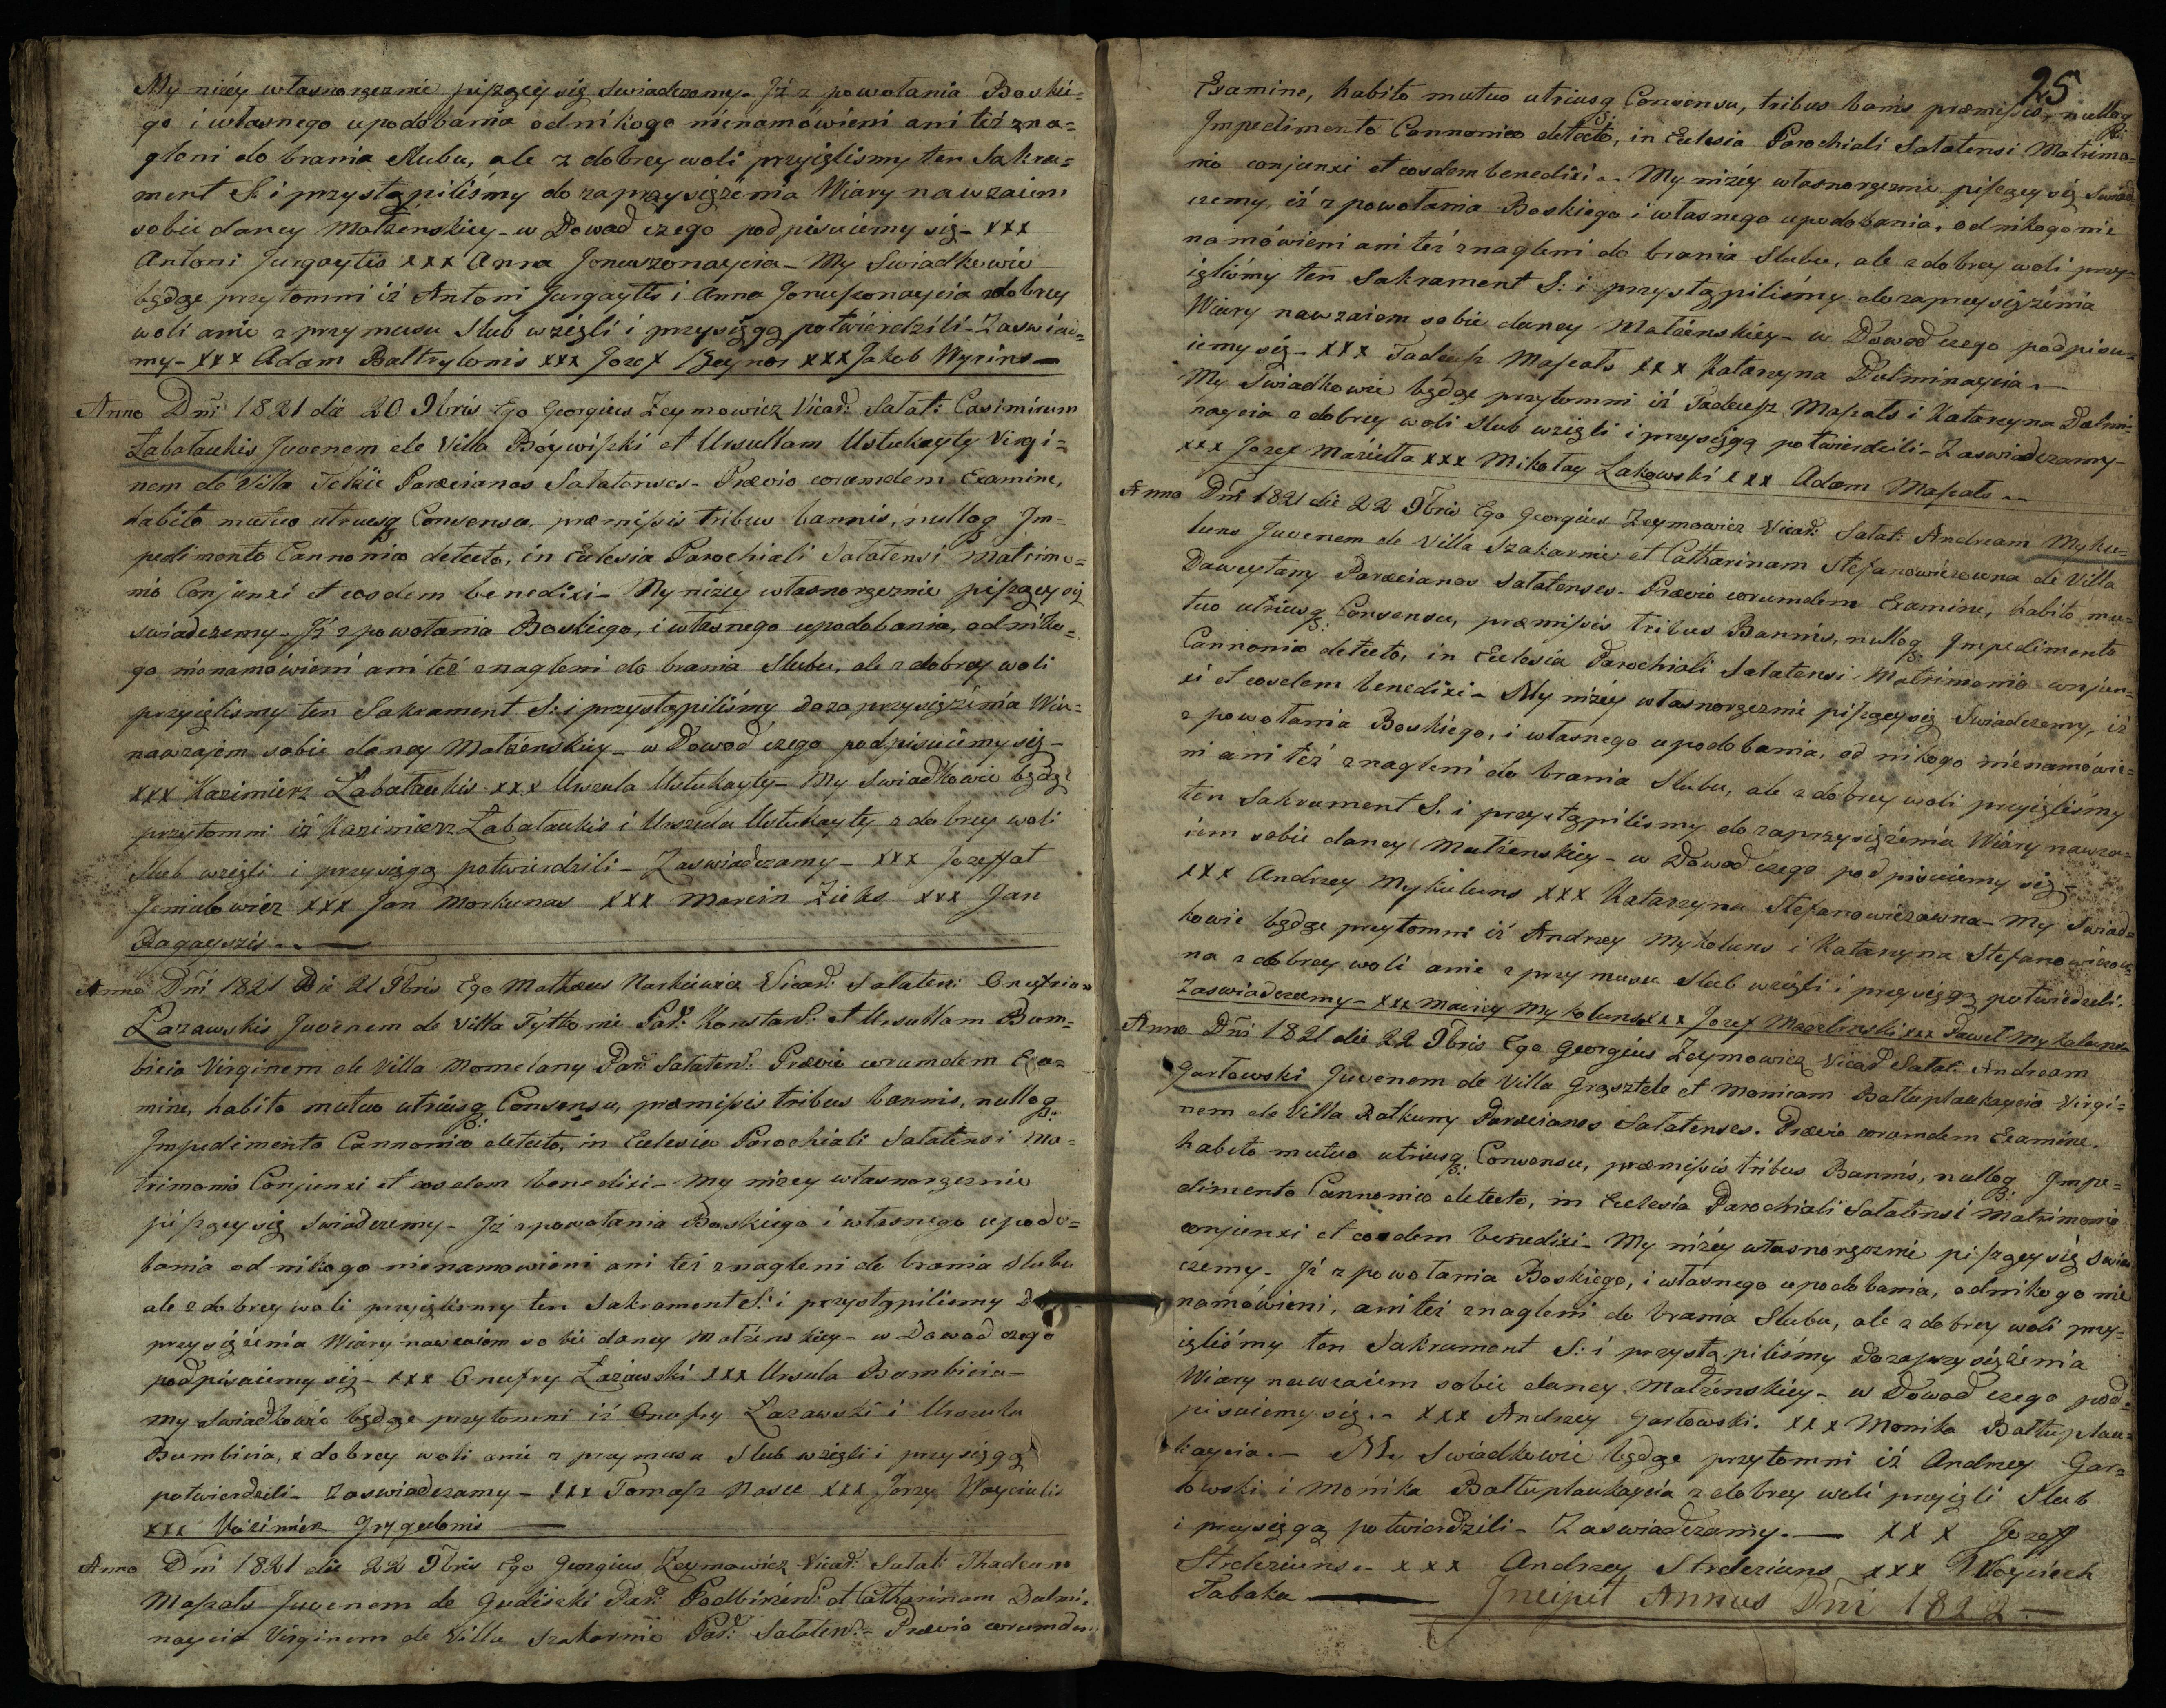 My niżey własnorgcznie piszący się swiadczemy. Jż z powołania Boskie=
go i własnego upodobania odnikogo nienamówieni ani też zna=
gleni do brania Slubu, ale z dobrey woli przyięlismy ten Sakra=
ment S: i przystąpiliśmy do zaprzysiężenia Wiary nawzaiem
sobie daney Małżenskiey - w Dowod czego podpisuiemy się - xxx
Antoni Jurgaytis xxx Anna Jonuszonaycia - My Swiadkowie
będąc przytomni iż Antoni Jurgaytis i Anna Jonuszonaycia z dobrey
woli anie z przymusu Slub wzięli i przysięgą potwierdzili - Zaswiad=
my - xxx Adam Baltrylonis xxx Jozef xxx Jakob Wyrins
Anno Dni 1821 die 20 9bris Ego Georgius Zeymowicz Vicad: Salat: Casimirum
Łabałaukis Juvenem de Villa Boywiszki et Ursullam Ustukayty Virgi=
nem de Villa Tekie Paraecianos Salatenses - Praevio eorumdem Examine,
habito mutuo utriusq: Consensu, praemissis tribus bannis, nulloq: Jm=
pedimento Cannonico detecto, in Eclesia Parochiali Salatensi Matrimo=
nio Conjunxi et eosdem benedixi - My niżey własnoręcznie piszący się
swiadczemy - Jż z powołania Boskiego, i własnego upodobania, odniko=
go nienamówieni ani też znagleni do brania Slubu, ale z dobrey woli
przyięlismy ten Sakrament S: i przystąpiliśmy do zaprzysiężenia Wia=
nawzajem sobie daney Małżenskiey - w Dowod czego podpisuiemy się -
xxx Kazimierz Łabałaukis xxx Urszula Ustukayty - My Swiadkowie będąc
przytomni iż Kazimierz Łabałaukis i Urszula Ustukayty z dobrey woli
Slub wzięli i przysięgą potwierdzili - Zaswiadczamy - xxx Jozeffat
Jeniałowicz xxx Jan Morkunas xxx Marcin Zieks xxx Jan
Ragayszis
Anno Dni 1821 Die 21 9bris Ego Mathaeus Narkiewicz Vicad: Salaten: Onufrium
Łazawskis Juvenem de Villa Tytkonie Pad: Konstad: et Ursullam Bum=
bicia Virginem de Villa Momelany Par: Salaten: Praevio eorumdem Exa=
mine, habito mutuo utriusq: Consensu, praemissis tribus bannis, nulloq:
Jmpedimento Cannonico detecto, in Eclesia Parochiali Salatensi Ma=
trimonio Conjunxi et eosdem benedixi - My niżey własnoręcznie
piszący się swiadczemy - Jż z powołania Boskiego i własnego upodo=
bania od nikogo nienamowieni ani też znagleni do brania Slubu
ale z dobrey woli przyięlismy ten Sakrament S: i przystąpilismy
przysiężenia Wiary nawzaiem sobie daney Małżenskiey - w Dowod czego
podpisuiemy się - xxx Onufry Łazawski xxx Ursula Bumbicia -
My Swiadkowie będąc przytomni iż Onufry Łazawski i Urszula
Bumbicia, z dobrey woli anie z przymusu Slub wzięli i przysięgą
potwierdzili - Zaswiadczamy - xxx Tomasz xxx Jerzy Woyciulis
xxx Kazimierz Grygalonis
Anno Dni 1821 die 22 9bris Ego Georgius Zeymowicz Vicad: Salat: Thadeum
Maszals Juvenem de Gudiszki Par: Podbirżen: et Catharinam Dulmi=
naycia Virginem de Villa Szakarnie Pad: Salaten: - Praevio eorumdem
25
Examine, habito mutuo utriusq: Consensu, tribus banis praemissis, nulloq:
Jmpedimento Cannonico detecto, in Eclesia Parochiali Salatensi Matrimo=
nio conjunxi et eosdem benedixi - My niżey własnorgcznie piszący się swiad
czemy, iż z powołania Boskiego i własnego upodobania, od nikogo nie
namówieni ani też znagleni do brania Slubu, ale z dobrey woli przy=
ięliśmy ten Sakrament S: i przystąpiliśmy do zaprzysiężenia
Wiary nawzaiem sobie daney Małżenskiey - w Dowod czego podpisu=
iemy się - xxx Tadeusz Maszals xxx Katarzyna Dulminaycia -
My Swiadkowie będąc przytomni iż Tadeusz Maszals i Katarzyna Dulmi=
naycia z dobrey woli Slub wzięli i przysięgą potwierdzili - Zaswiadczamy -
xxx Jozef Marietta xxx Mikołay Łakowski xxx Adam Maszals
Anno Dni 1821 die 22 9bris Ego Georgius Zeymowicz Vicad: Salat: Andream Myko=
luns Juvenem de Villa Szakarnie et Catharinam Stefanowiczowna de Villa
Dawcytany Paraecianos Salatenses - Praevio eorumdem Examine, habito mu=
tuo utriusq: Consensu, praemissis tribus Bannis, nulloq: Jmpedimento
Cannonico detecto, in Eclesia Parochiali Salatensi Matrimonio conjun=
xi et eosdem benedixi - My niżey własnorgcznie piszący się Swiadczemy, iż
z powołania Boskiego, i własnego upodobania, od nikogo nienamówie=
ni ani też znagleni do brania Slubu, ale z dobrey woli przyięliśmy
ten Sakrament S. i przystąpilismy do zaprzysiężenia Wiary nawza=
iem sobie daney Małżenskiey - w Dowod czego podpisuiemy się -
xxx Andrzey Mykoluns xxx Katarzyna Stefanowiczowna - My Swiad=
kowie będąc przytomni iż Andrzey Mykoluns i Katarzyna Stefanowiczow=
na z dobrey woli anie z przymusu Slub wzięli i przysięgą potwierdzili.
Zaswiadczemy - xxx Maciey Mykoluns xxx Jozef xxx Paweł Mykoluns
Anno Dni 1821 die 22 9bris Ego Georgius Zeymowicz Vicad Salat: Andream
Garłowski Juvenem de Villa Grasztele et Monicam Baltuplaukaycia Virgi=
nem de Villa Ratkuny Paraecianos Salatenses. Praevio eorumdem Examine.
habito mutuo utriusq: Consensu, praemissis tribus Bannis, nulloq: Jmpe=
dimento Cannonico detecto, in Eclesia Parochiali Salatensi Matrimonio
conjunxi et eosdem benedixi - My niżey własnorgcznie piszący się swiad
czemy - Jż z powołania Boskiego, i własnego upodobania, odnikogo nie
namówieni, ani też znagleni do brania Slubu, ale z dobrey woli przy=
ięliśmy ten Sakrament S: i przystąpiliśmy do zaprzysiężenia
Wiary nawzaiem sobie daney Małżenskiey - w Dowod czego pod=
pisuiemy się - xxx Andrzey Garłowski. xxx Monika Baltuplau=
kaycia - My Swiadkowie będąc przytomni iż Andrzey Gar=
łowski i Monika Baltuplaukaycia z dobrey woli przyięli Slub
i przysięgą potwierdzili - Zaswiadczamy. — xxx Jozeff
Strdeziuns - xxx Andrzey Strdeziuns xxx Woyciech
Tabaka — Jncipit Annus Dni 1822 —